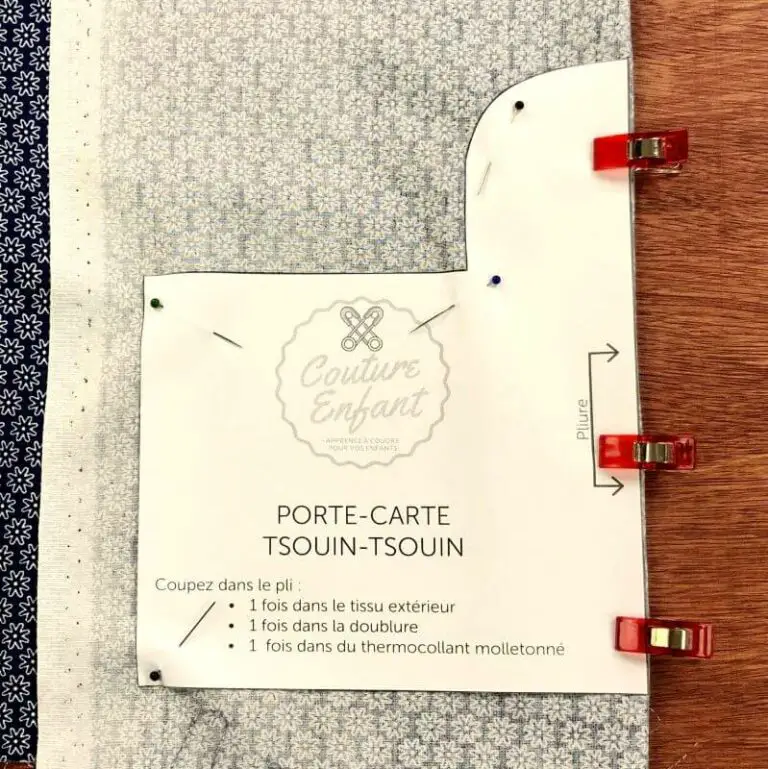 Couture
Enfant
APPRENEZ À COUDRE
POUR VOS ENFANTS
Pliure
PORTE-CARTE
TSOUIN-TSOUIN
Coupez dans le pli :
• 1 fois dans le tissu extérieur
• 1 fois dans la doublure
• 1 fois dans du thermocollant molletonné